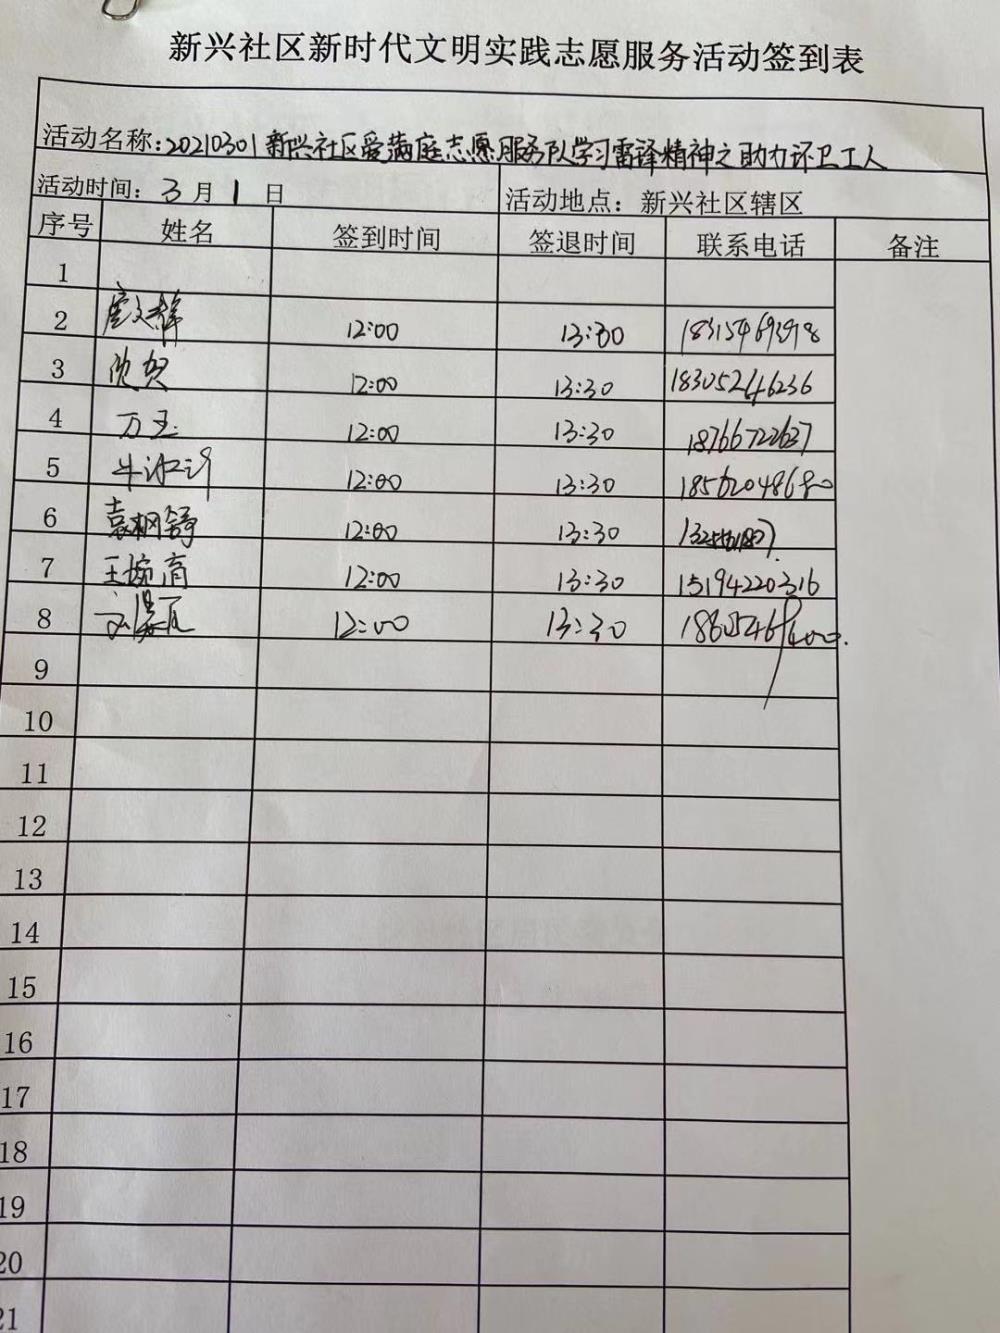 新兴社区新时代文明实践志愿服务活动签到表
活动名称:20210301新兴社区爱满庭志愿服务队学习雷锋精神之助力环卫工人
活动时间: 3 月 1 日 活动地点：新兴社区辖区
序号 姓名 签到时间 签退时间 联系电话 备注
1
2 12:00 13:30 18315469398
3 12:00 13:30 18305246236
4 万玉 12:00 13:30 18766722627
5 12:00 13:30 18562048680
6 12:00 13:30
7 12:00 13:30 15194220316
8 12:00 13:30
9
10
11
12
13
14
15
16
17
18
19
20
21